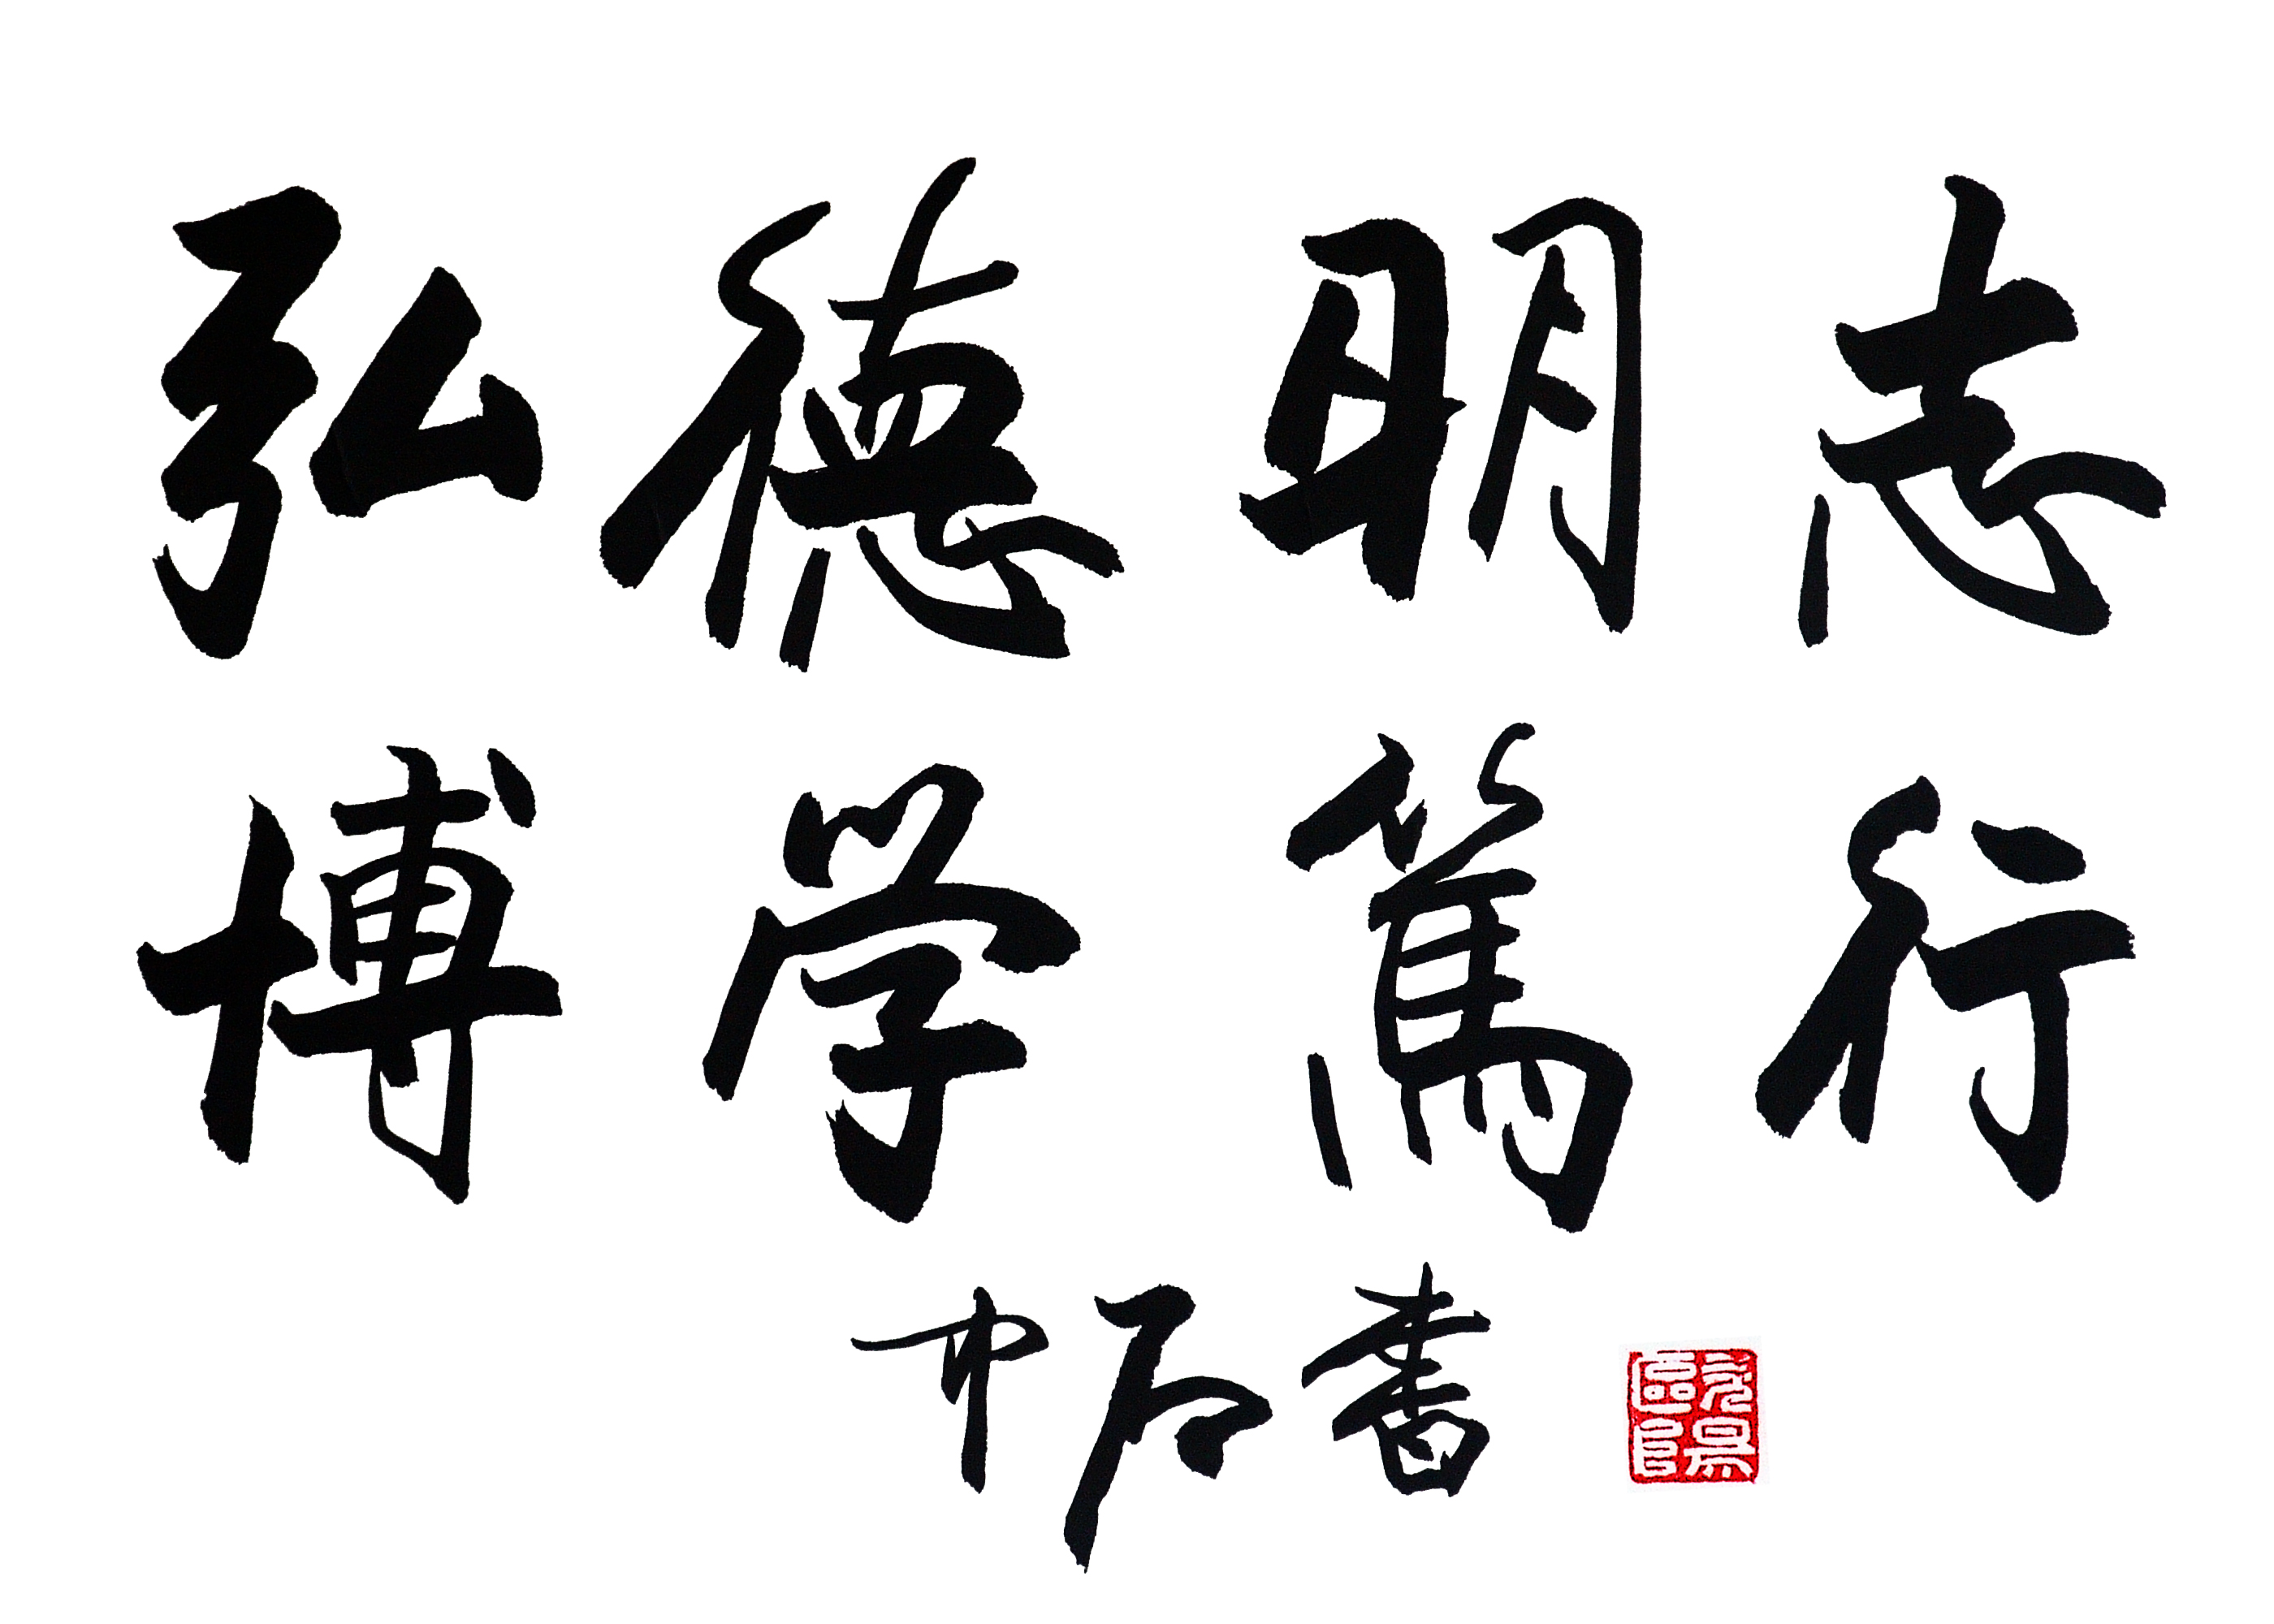 弘德明志
博学篤行
中石書